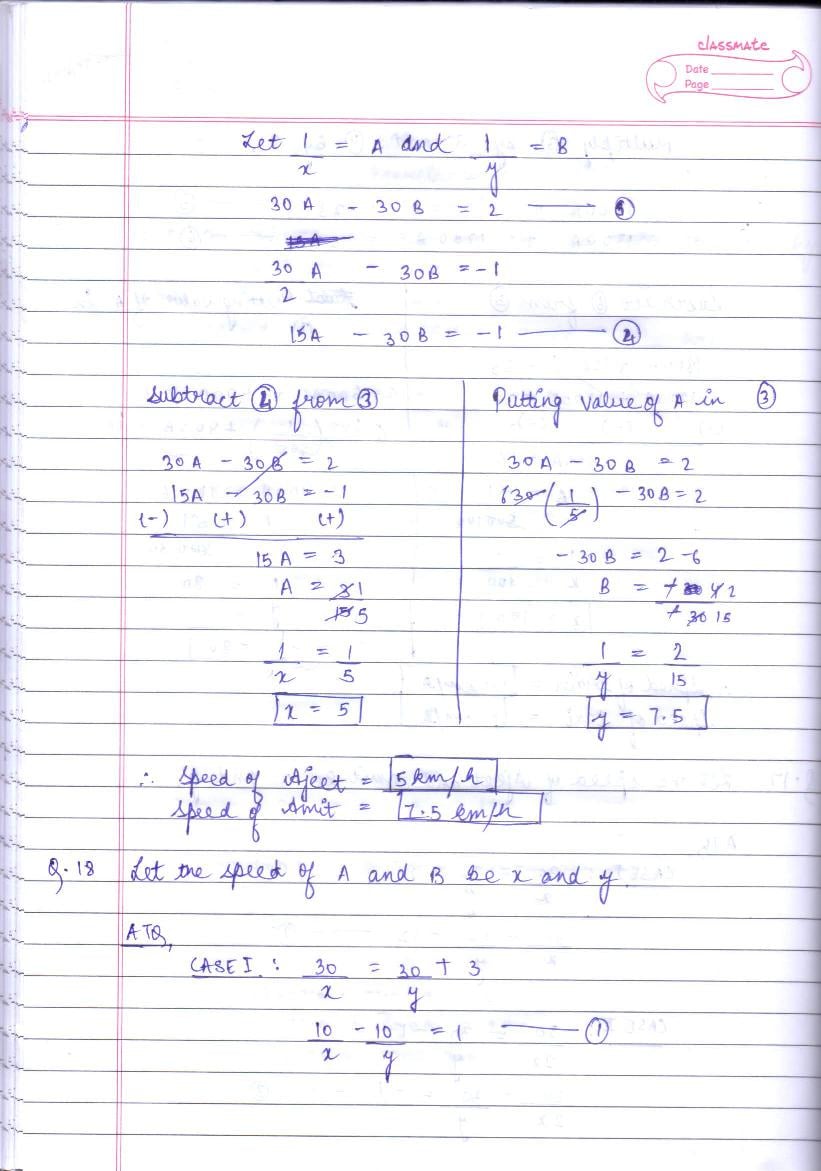 classmate
Date
Page
Let 1/x = A and 1/y = B.
30A - 30B = 2 ——— ③
30/2 A - 30B = -1
15A - 30B = -1 ——— ④
Subtract ④ from ③
30A - 30B = 2
15A - 30B = -1
(-) (+) (+)
15A = 3
A = 3 1/15 5
1/x = 1/5
x = 5
Putting value of A in ③
30A - 30B = 2
6 30 (1/5) - 30B = 2
-30B = 2 - 6
B = + 4 2/+ 30 15
1/y = 2/15
y = 7.5
∴ Speed of Ajeet = 5 km/h
Speed of Amit = 7.5 km/h
Q.18 Let the speed of A and B be x and y.
ATQ,
CASE I : 30/x = 30/y + 3
10/x - 10/y = 1 ——— ①